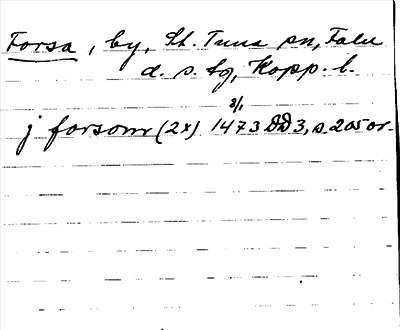 Forsa, by, St. Tuna sn, Falu
d. s. tg, Kopp. l.
2/1
j forsom (2x) 1473 DD 3, s. 205 or.